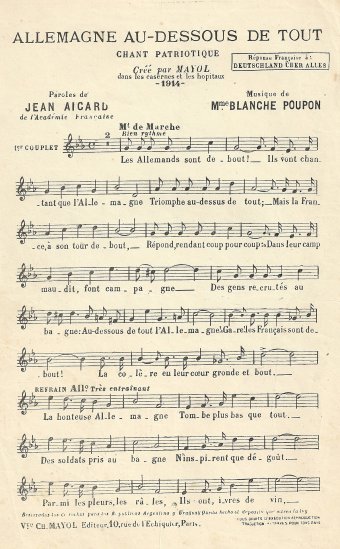 ALLEMAGNE AU-DESSOUS DE TOUT
CHANT PATRIOTIQUE
Créé par MAYOL
dans les casernes et les hopitaux
-1914-
Réponse Française à:
DEUTSCHLAND ÜBER ALLES
Paroles de
JEAN AICARD
de l'Académie Française
Musique de
Mme BLANCHE POUPON
Mt de Marche
Bien rythmé
1er COUPLET
2
Les Allemands sont de_bout!_ Ils vont chan_
_tant que l'Al_le_ma_gne Triomphe au-dessus de tout;_ Mais la Fran_
_ce, à son tour de_bout,_ Répond, rendant coup pour coup:_ Dans leur camp
mau_dit, font cam_pa_gne_ Des gens re_cru_tés au
ba_gne: Au-dessous de tout l'Al_le_ma_gne! Ga_re! les Français sont de_
_bout! La co_lè_re en leur cœur gronde et bout._
REFRAIN Allo Très entraînant
La honteuse Al_le_ma_gne Tom_be plus bas que tout._
Des soldats pris au ba_gne N'ins_pi_rent que dé_goût._
Par_mi les pleurs, les râ_les, Ils ont, i_vres de vin,_
Vve CH. MAYOL Editeur, 10, rue de l'Echiquier, Paris.
TOUS DROITS D'EXÉCUTION REPRODUCTION
TRADUCTION